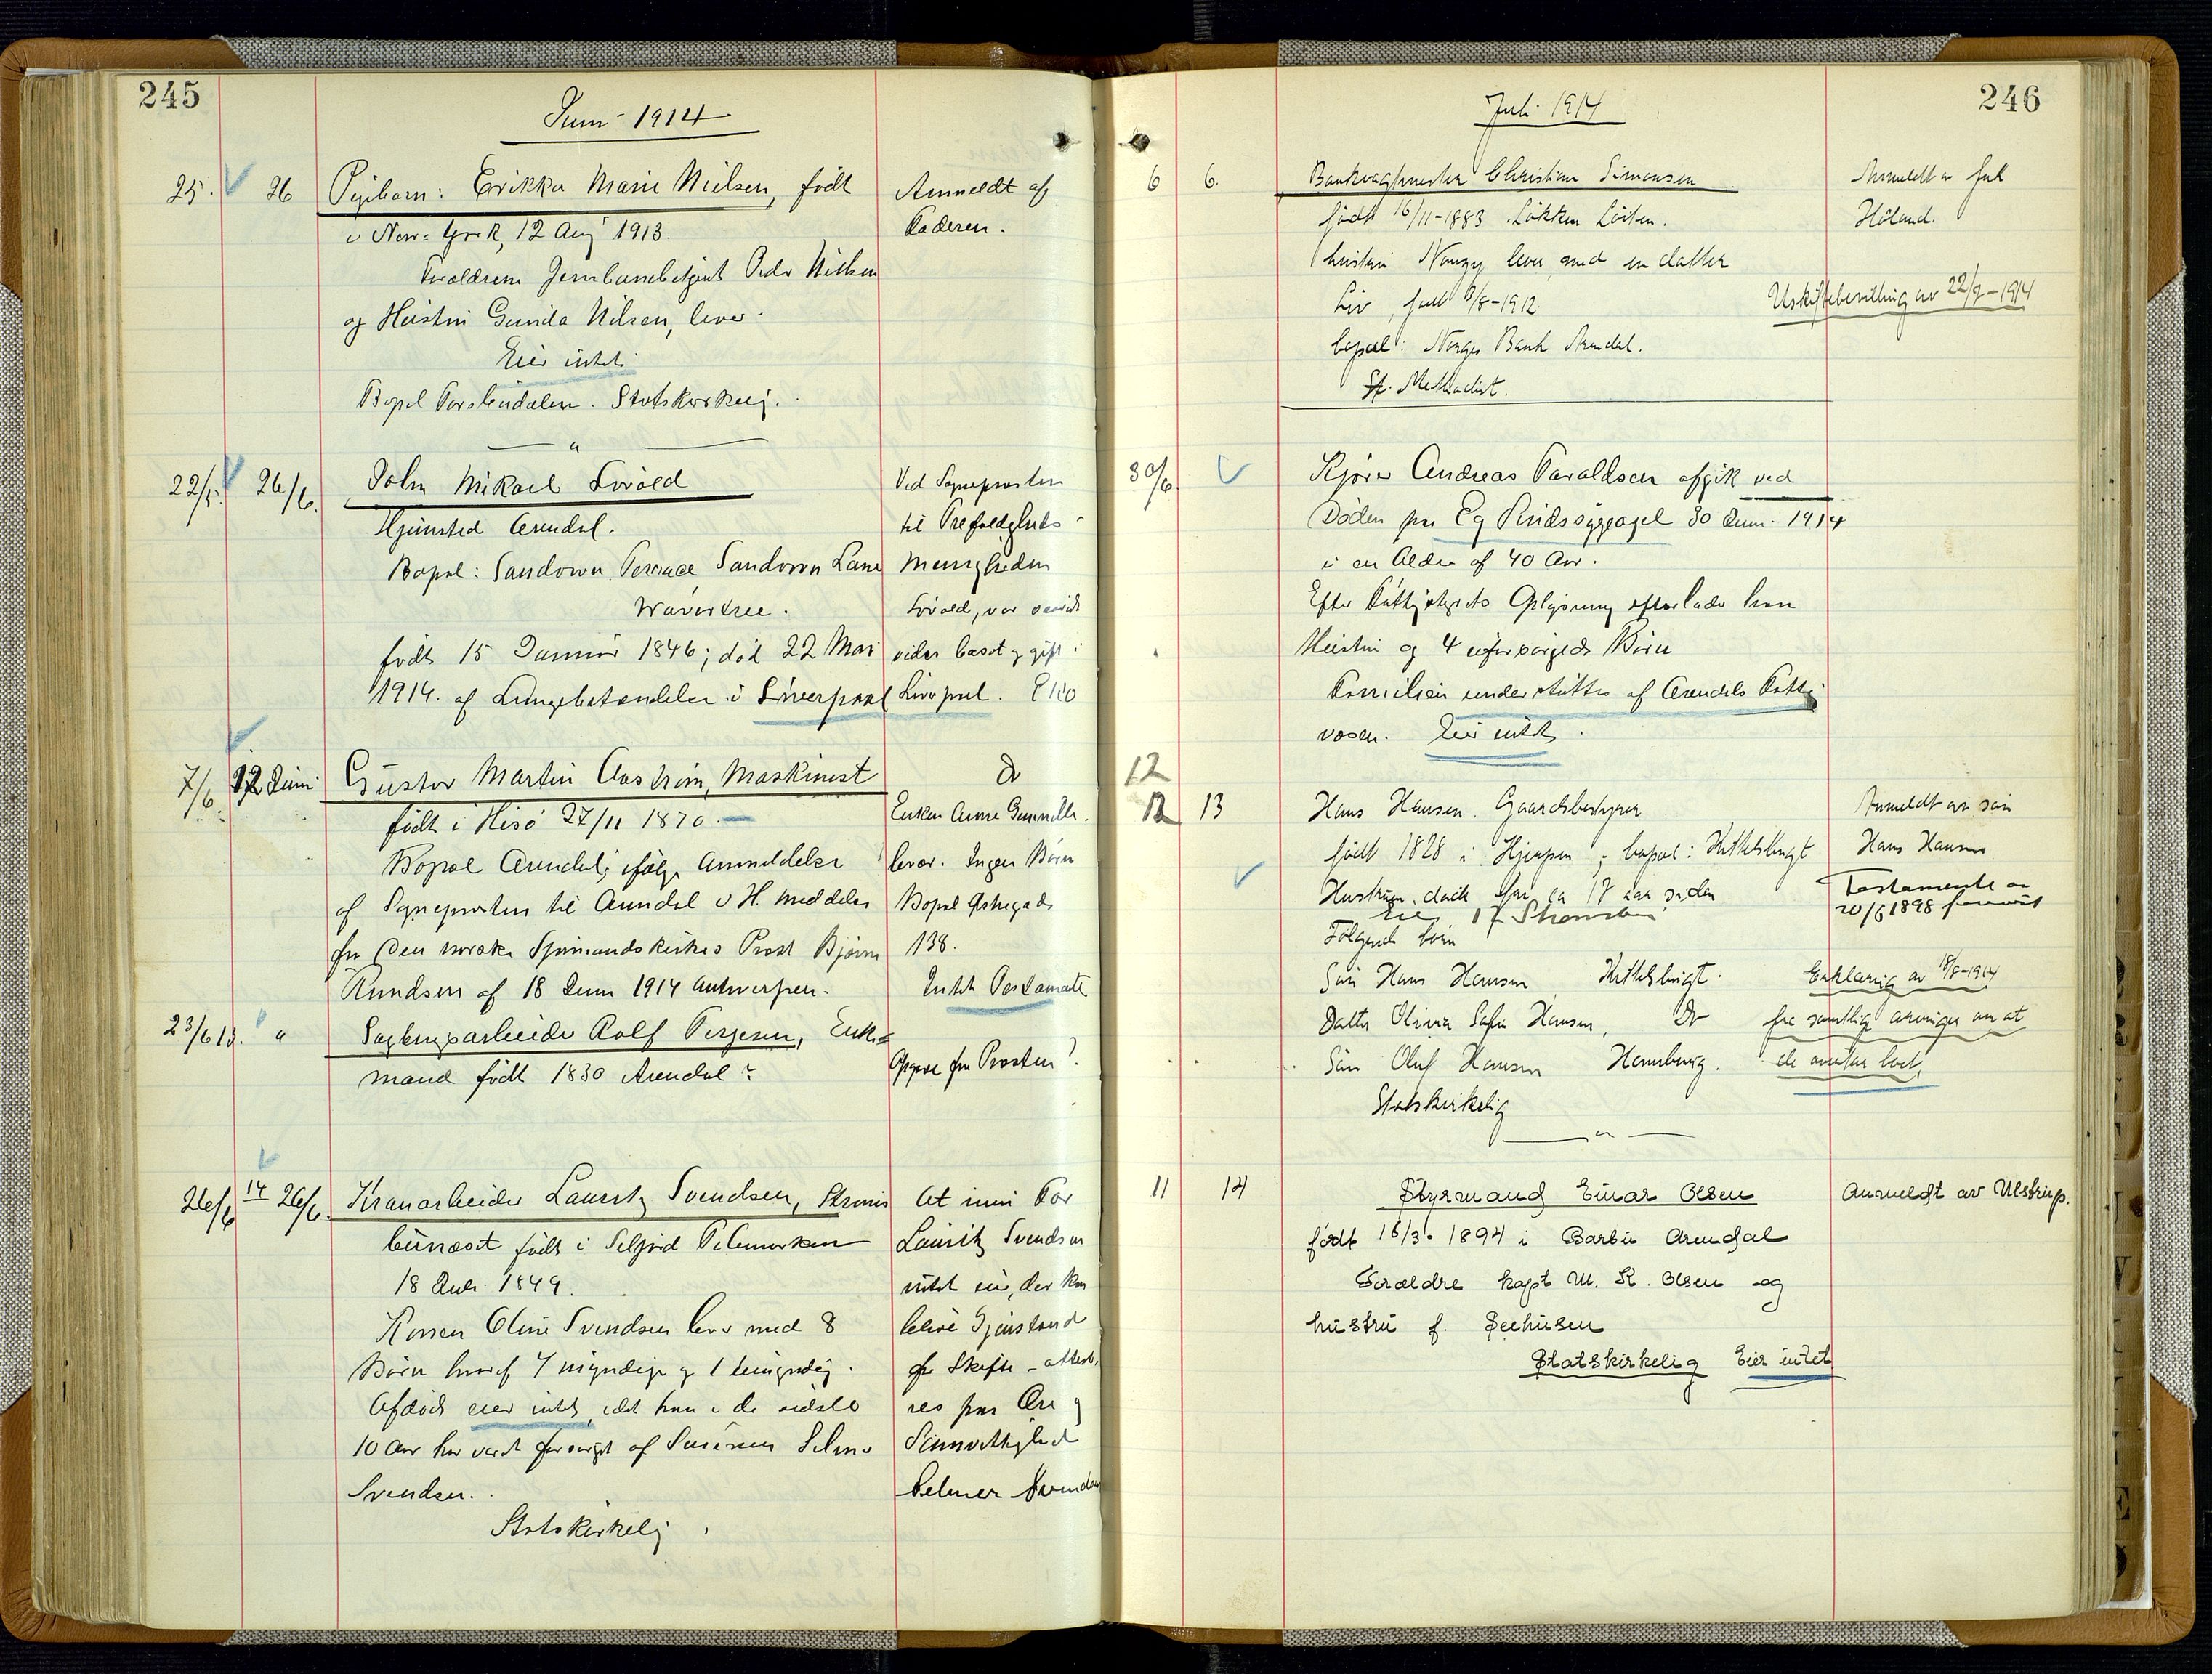 245
Juni 1914
25. 26 Pigebarn: Erikka Marie Nielsen, født
i New-York, 12 Aug 1913.
Forældrene Jernbanebetjent Peder Nielsen
og Hustru Gunda Nilsen, lever.
Eier intet
Bopæl Torsbudalen. Statskirkelig.
Anmeldt af
Faderen.
22/5. 26/6. John Mikael Lovold
Hjemsted Arendal.
Bopæl: Sandown Terrace Sandown Lane
Wavertree.
født 15 Januar 1846; död 22 Mai
1914. af Lungebetændelse i Liverpool
Ved Sognepresten
til Trefoldigheds
Menigheden
Lovold, var
viden bosat og gift i
Liverpool.
7/6. 12 Juni Gustav Martin Aaström, Maskinist
født i Hisö 27/11 1870.
Bopæl Arendal, ifølge Anmeldelse
af Sognepresten til Arendal v H. meddelse
fra Den norske Sjømandskirkes Prest Bjørn
Knudsen af 18 Juni 1914 Antwerpen.
Do
Enken Anne Gunnille
lever. Ingen Børn
Bopæl
138.
Intet Testamente
23/6 13. " Sagbrugsarbeider Rolf Terjesen, Enke-
mand født 1830 Arendal?
Opgave fra Presten?
26/6 14 26/6. Kranarbeider Lauritz Svendsen, Strøms
bunæset født i Seljord Telemarken
18 Juli 1849.
Konen Oline Svendsen lever med 8
Børn hvoraf 7 myndige og 1 umyndig.
Afdøde eier intet, idet han i de sidste
10 Aar har været forsørget af Sønnen Selmer
Svendsen.
Statskirkelig
At min Far
Lauritz Svendsen
intet eier, der kan
blive Gjenstand
for Skifte - attest-
res paa Ære og
Samvittighed
Selmer Svendsen
246
Juli 1914
6 6. Bankvagtmester Christian Simonsen
født 16/11-1883 Løkken Løiten.
hustru Nanzy lever med en datter
Liv, født 3/8-1912
bopæl: Norges Bank Arendal.
Methodist.
Anmeldt av frk
Høland.
Uskiftebevilling av 22/7-1914
30/6. Kjører Andreas Taraldsen afgik ved
Døden paa Eg Sindssygeasyl 30 Juni 1914
i en Alder af 40 Aar.
Efter Fattigstyrets Oplysning efterlader han
Hustru og 4 uforsørgede Børn
Familien understøttes af Arendals Fattig
væsen. Eier intet.
12
12 13 Hans Hansen. Gaardsbestyrer
født 1828 i Hjerpsen, bopæl: Kittelsbugt
Hustrun døde for ca 17 aar siden
Eier 17
Følgende børn
Søn Hans Hansen Kittelsbugt.
Datter Olivia Sofie Hansen, Do
Søn Oluf Hansen Hamburg.
Statskirkelig
Anmeldt av søn
Hans Hansen
Testamente av
20/6 1898
Erklæring av 18/8-1914
fra samtlige arvinger om at
de overtar boet.
11 14 Styrmand Einar Olsen
født 16/3. 1894 i Barbu Arendal
Forældre kapt M. K. Olsen og
hustru f. Seehusen
Statskirkelig Eier intet
Anmeldt av Ulstrup.